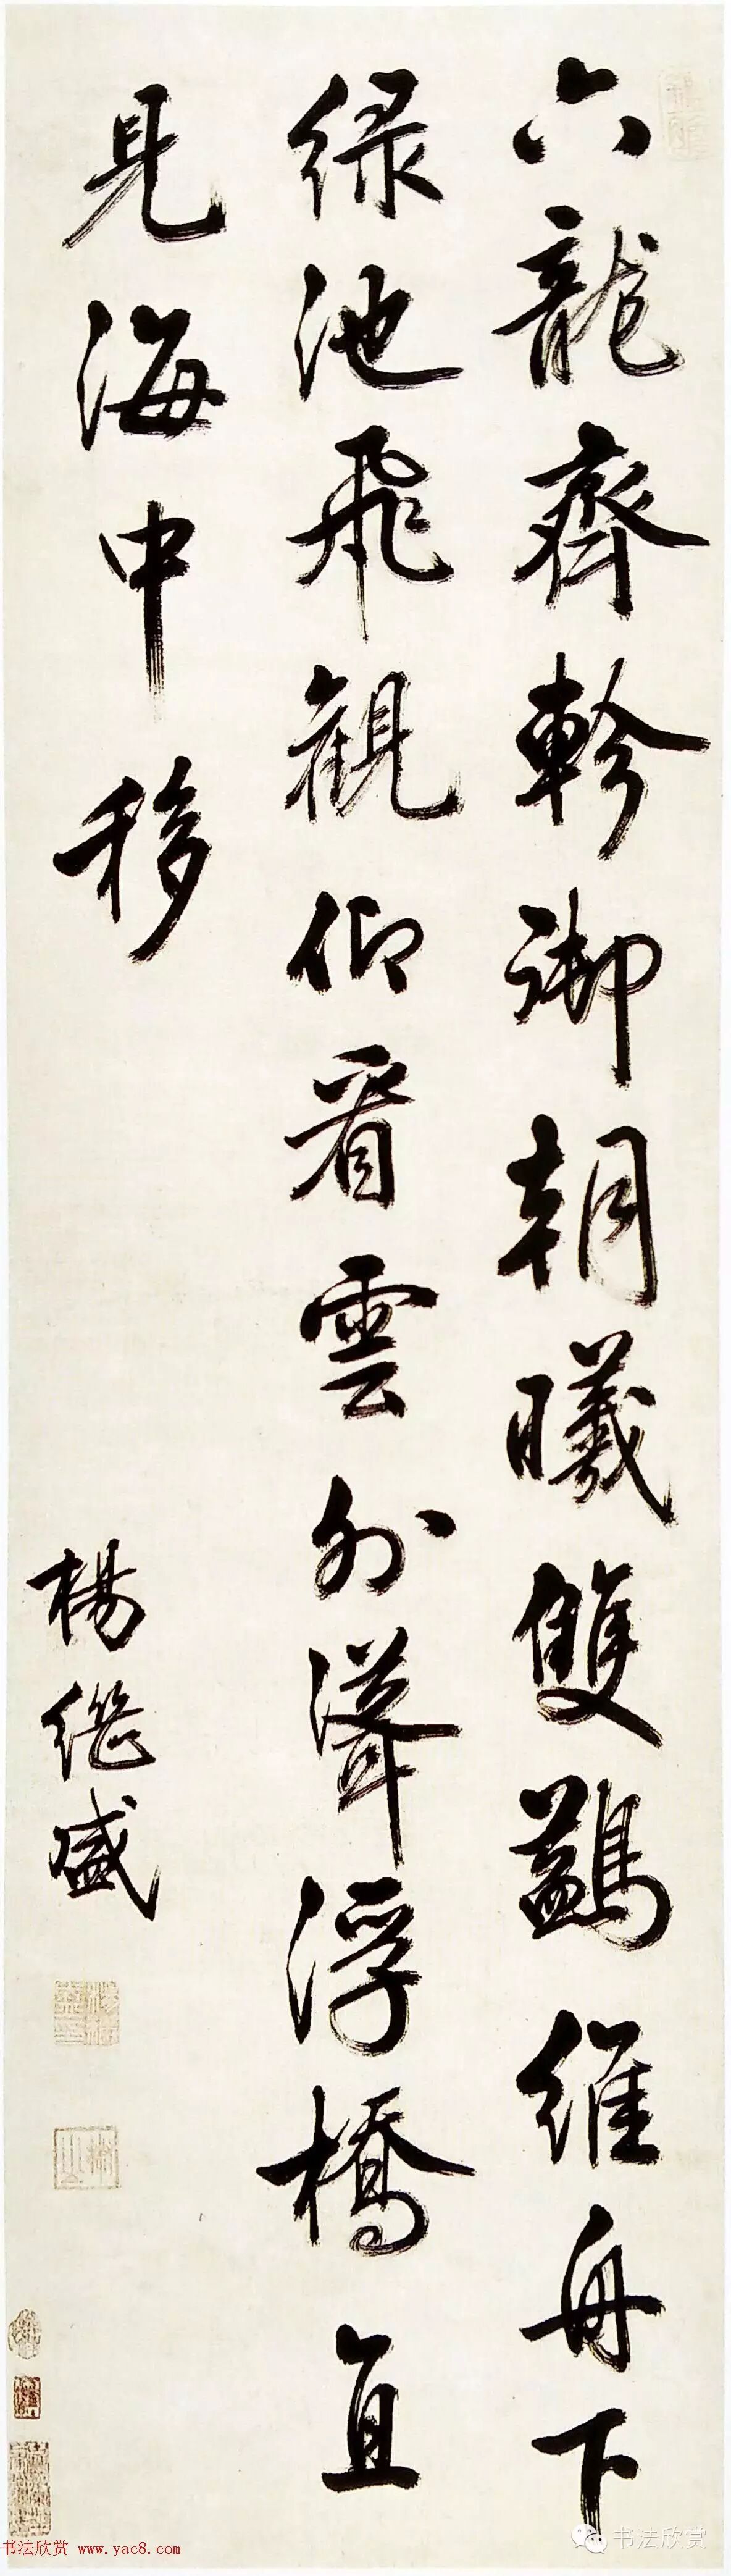 六龍齊軫御朝曦雙鷁維舟下
绿池飛觀仰看雲外聳浮橋直
見海中移
楊継盛
书法欣赏 www.yac8.com
书法欣赏